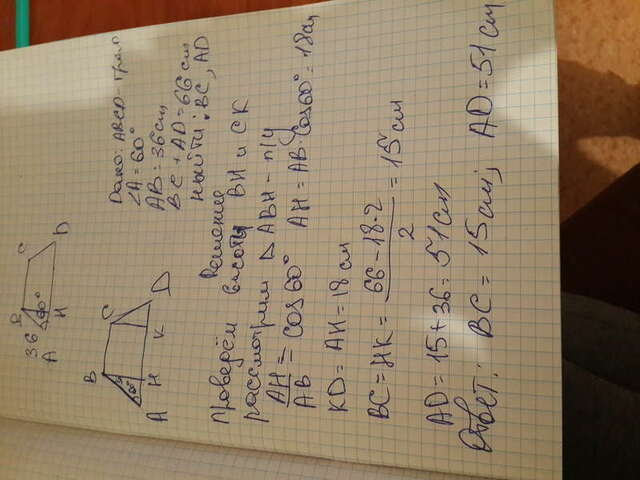 Дано: ABCD - трап
∠A = 60°
AB = 36 cm
BC + AD = 66 cm
Найти: BC, AD
B C
36 60°
A H D
B C
60°
A H K D
Решение
Проведём высоты BH и CK
рассмотрим Δ ABH - п/у
AH/AB = cos 60° AH = AB · cos 60° = 18 см
KD = AH = 18 см
BC = HK = (66 - 18·2)/2 = 15 см
AD = 15 + 36 = 51 см
Ответ: BC = 15 см; AD = 51 см